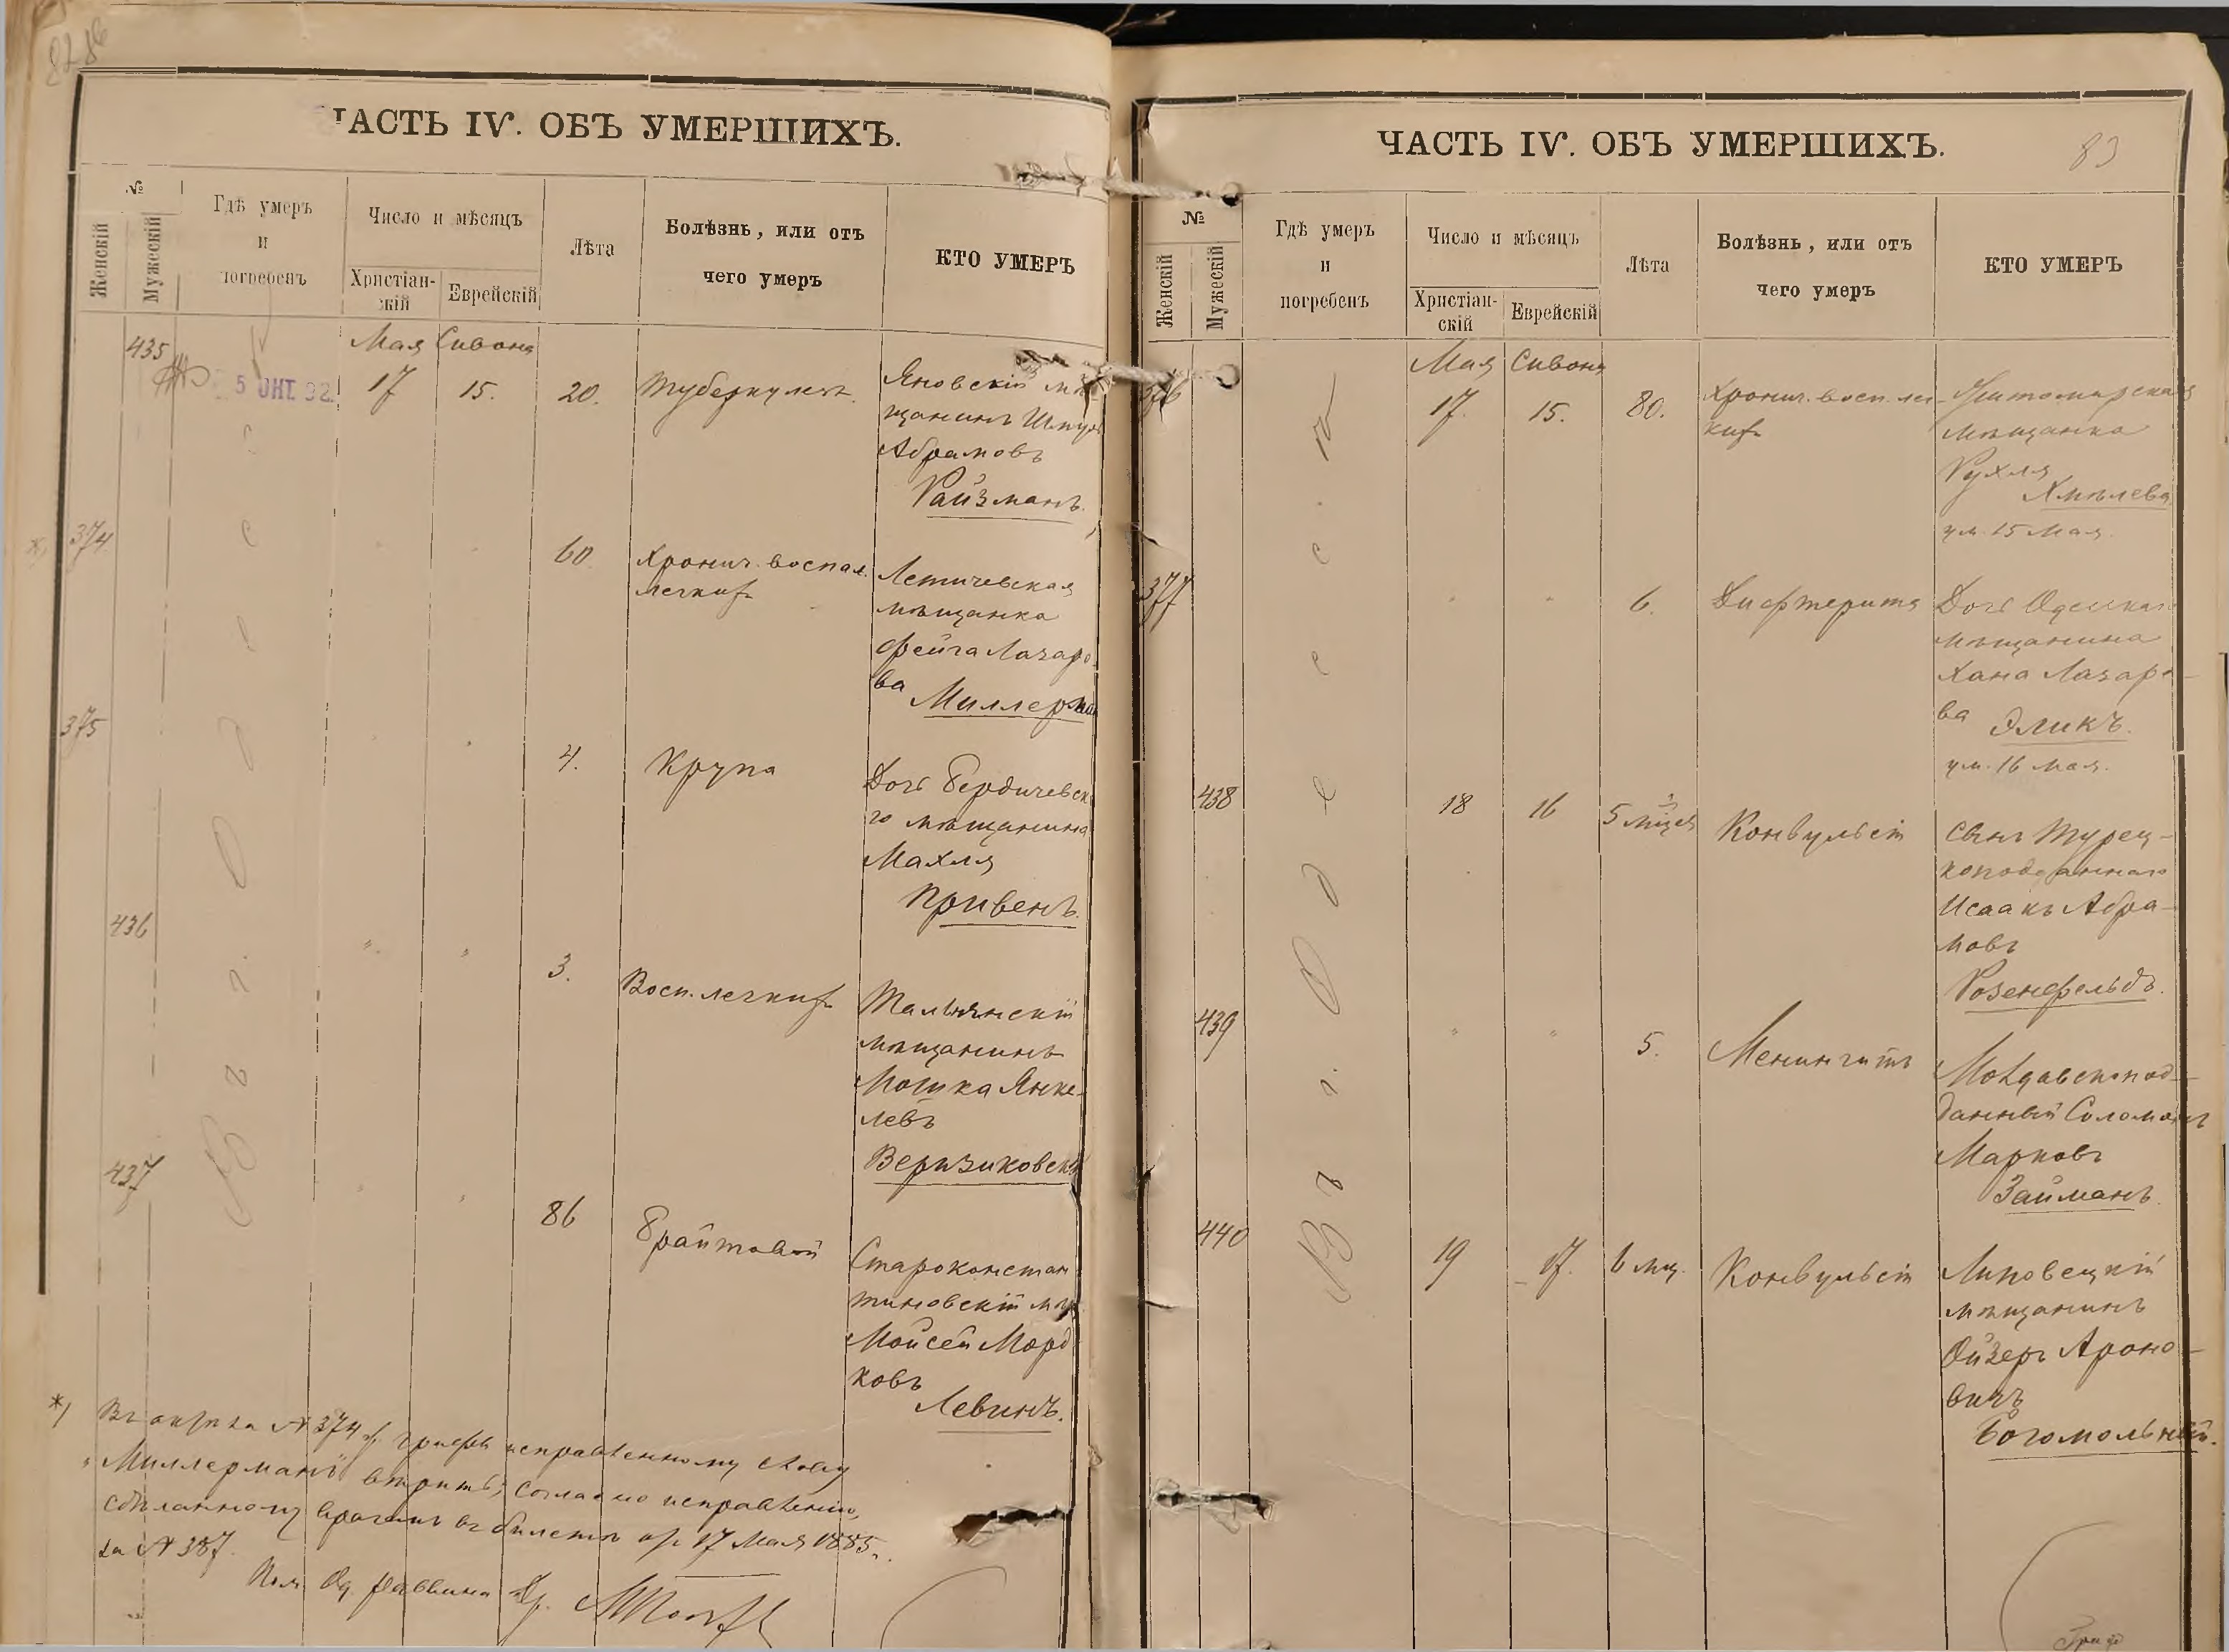 82
ЧАСТЬ IV. ОБЪ УМЕРШИХЪ.
№
Женскій
Мужескій
Гдѣ умеръ
и
погребенъ
Число и мѣсяцъ
Христіан-
скій
Еврейскій
Лѣта
Болѣзнь, или отъ
чего умеръ
КТО УМЕРЪ
Въ г. Одессѣ
435
5 ОКТ 92
Мая Сивона
17 15. 20.
Туберкулезъ
Яновскій мѣ-
щанинъ
Абрамовъ
Райзманъ.
*)
374
" "
60.
Хронич. воспал.
легкихъ
Летичевская
мѣщанка
Фейга Лазаро-
ва Миллерманъ
375
" "
4.
Крупа
Дочь Бердичевск
го мѣщанина
Махля
Привенъ.
436
" "
3.
Восп. легкихъ
Тальнянскій
мѣщанинъ
Мошка Янке-
левъ
437
" "
86
Старокон­стан
тиновскій мѣщ.
Мойсей Морд
ковъ
Левинъ.
*) Въ актѣ за № 374 ж. графѣ исправленному слову
"Миллерманъ" вѣрить, согласно исправленію,
сдѣланному врачемъ въ билетѣ отъ 17 Мая 1885 г.
за № 387.
Пом. Од. Раввина Др.
ЧАСТЬ IV. ОБЪ УМЕРШИХЪ.
83
№
Женскій
Мужескій
Гдѣ умеръ
и
погребенъ
Число и мѣсяцъ
Христіан-
скій
Еврейскій
Лѣта
Болѣзнь, или отъ
чего умеръ
КТО УМЕРЪ
Въ г. Одессѣ
376
Мая Сивона
17. 15. 80.
Хронич. восп. лег-
кихъ
Житомирская
мѣщанка
Рухля
Хмѣлева
ум. 15 Мая.
377
" "
6.
Дифтерита
Дочь Одесскаго
мѣщанина
Хана Лазаро-
ва Эликъ.
ум. 16 мая.
438
18 16 5 мѣсяц
Конвульсій
Сынъ Турец-
коподданнаго
Исаакъ Абра-
мовъ
Розенфельдъ.
439
" "
5.
Менингитъ
Молдавскопод-
данный Соломонъ
Марковъ
Займанъ.
440
19 17. 6 мѣц.
Конвульсій
Липовецкій
мѣщанинъ
Ойзеръ Ароно-
вичъ
Богомольный.